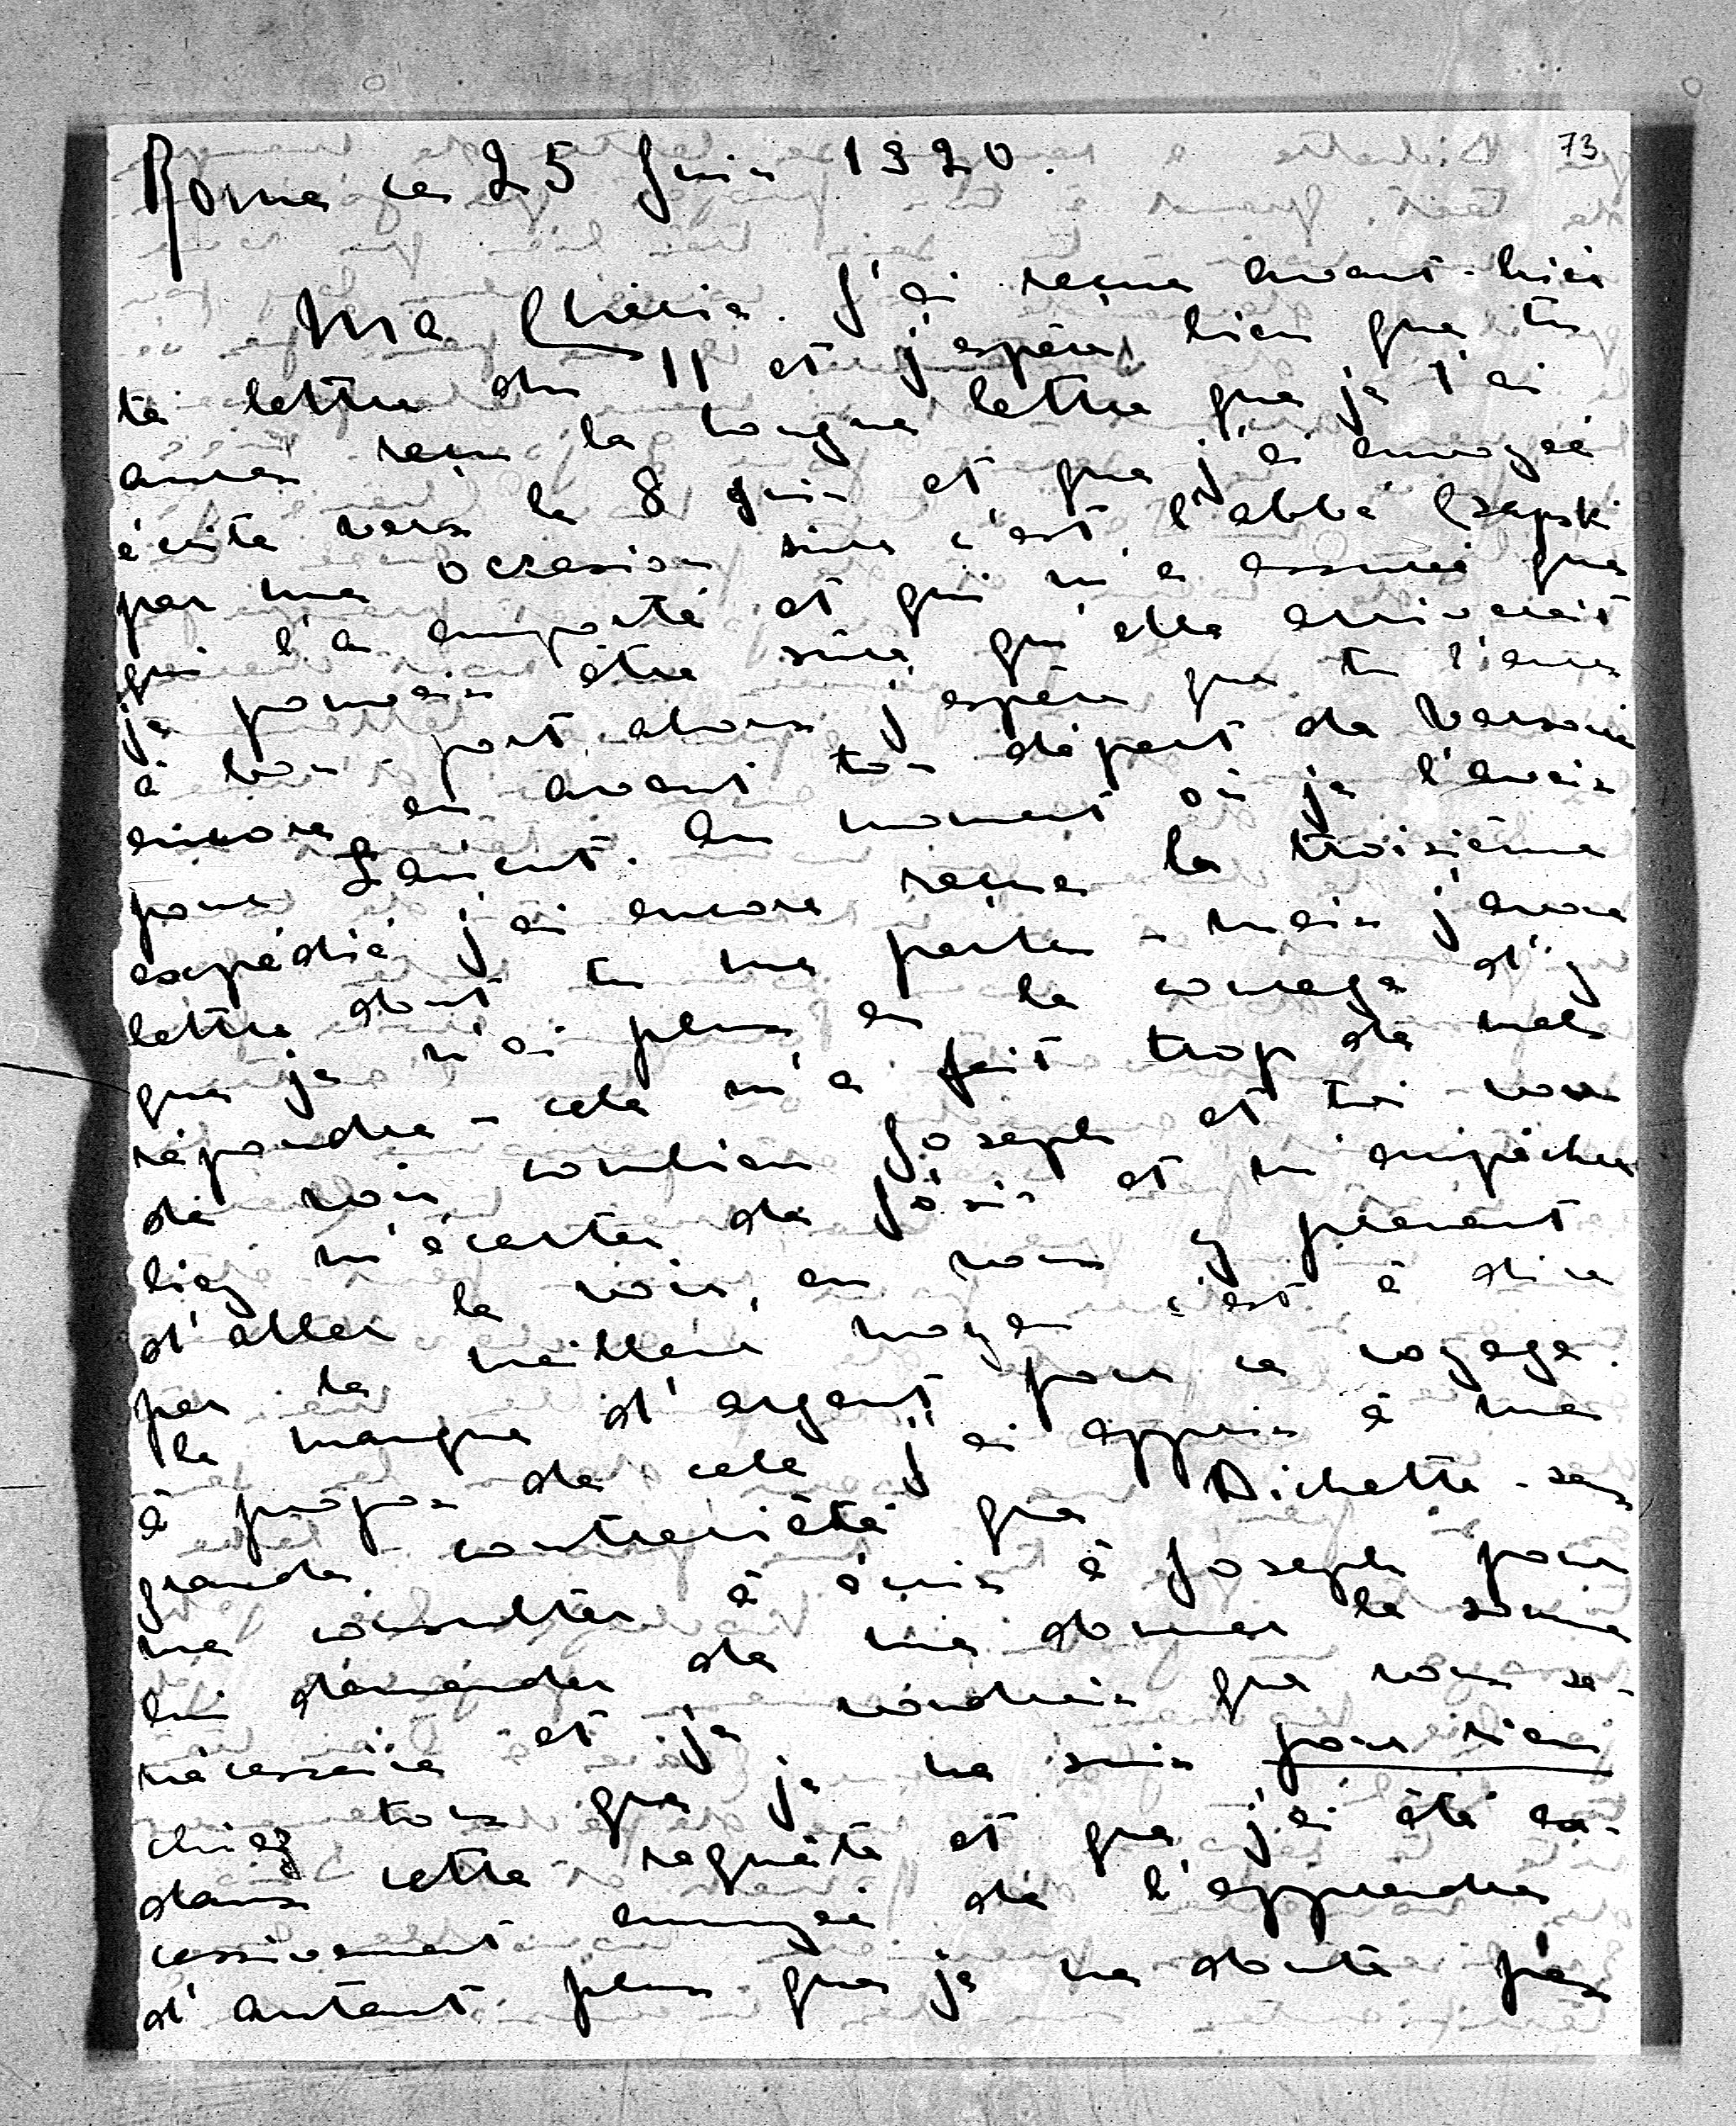 73
Rome ce 25 Juin 1920.
Ma Chérie. J'ai reçue avant-hier
ta lettre du 11 et j'espère bien que tu
auras reçu la longue lettre que je t'ai
écrite vers le 8 juin et que j'ai envoyée
par une occasion sûre c'est l'abbé Czapski
qui l'a emporté et qui m'a assuré que
je pouvais être sûre qu'elle arriverait
à bon-port, alors j'espère que tu l'auras
encore eu avant ton départ de Varsovie
pour Łańcut. Au moment où je l'avais
expédié j'ai encore reçue la troisième
lettre dont tu me parles - mais j'avoue
que je n'ai plus eu le courage d'y
répondre - cela m'a fait trop de mal
de voir combien Joseph et toi vou-
liez m'écarter de Józio et m'empêcher
d'aller le voir, en vous y prenant
par le meilleur moyen c'est à dire
le manque d'argent pour ce voyage.
à propos de cela j'ai appris à ma
grande contrariété que Dichette - sans
me consulter a écris à Joseph pour
lui demander de me donner la somme
nécessaire et je voudrais que vous sa-
chiez tous que je ne suis pour rien
dans cette requête et que j'ai été ex-
cessivement ennuyée de l'apprendre
d'autant plus que je ne doute pas